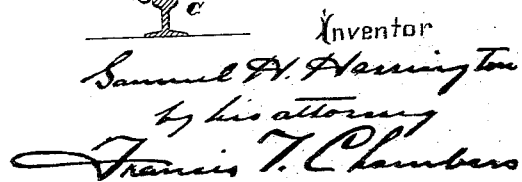 C
Inventor
Samuel H. Harrington
by his attorney
Francis T. Chambers